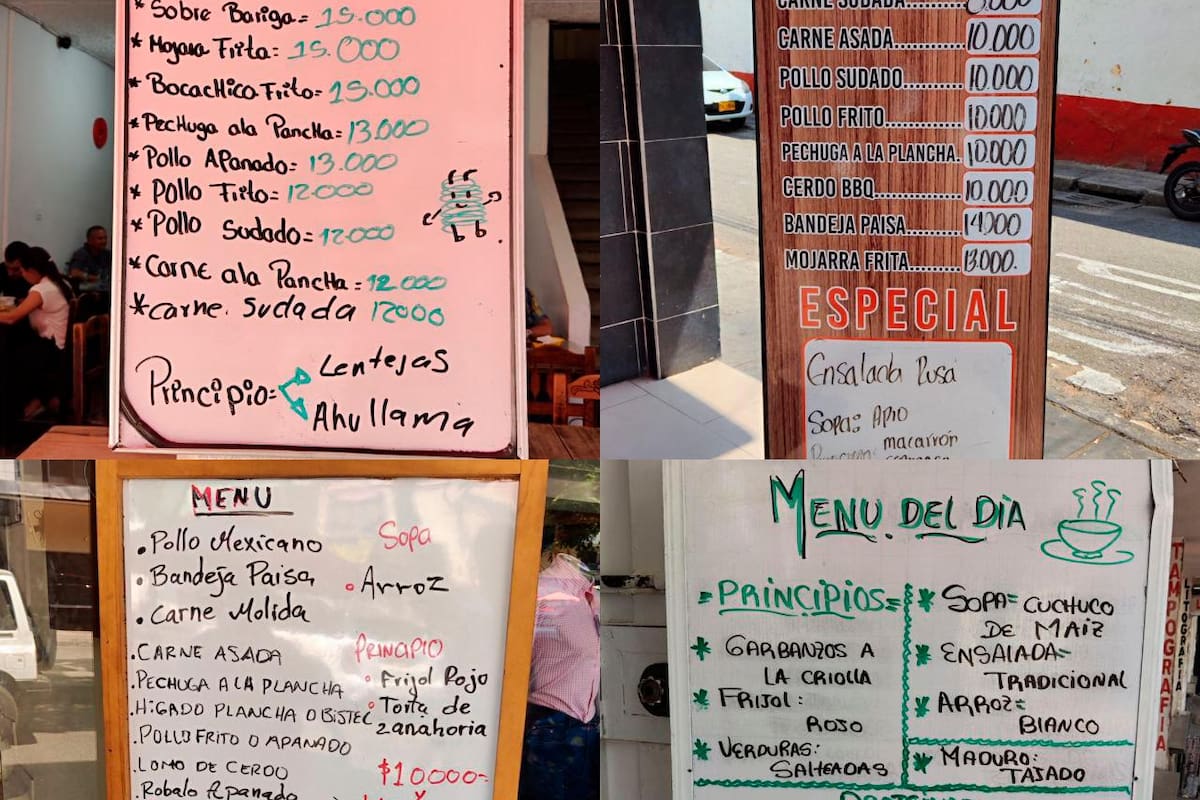 * Sobre Bariga = 15.000
* Mojara Frita: 15.000
* Bocachico Frito = 15.000
* Pechuga ala Pancha = 13.000
* Pollo Apanado = 13.000
* Pollo Frito = 12.000
* Pollo Sudado = 12.000
* Carne ala Pancha = 12.000
* Carne. Sudada 12000
Principio =
Lentejas
Ahullama
CARNE SUDADA
CARNE ASADA............ 10.000
POLLO SUDADO.......... 10.000
POLLO FRITO............. 10.000
PECHUGA A LA PLANCHA. 10.000
CERDO BBQ............. 10.000
BANDEJA PAISA......... 14.000
MOJARRA FRITA......... 13.000.
ESPECIAL
Ensalada Rusa
Sopa: Apio
macarrón
MENU
. Pollo Mexicano
. Bandeja Paisa
. Carne Molida
. CARNE ASADA
. PECHUGA A LA PLANCHA
. HIGADO PLANCHA O BISTEC
. POLLO FRITO O APANADO
. LOMO DE CERDO
. Robalo Apanado
Sopa
• Arroz
PRINCIPIO
• Frijol Rojo
• Torta de
zanahoria
$10000-
MENU. DEL DÌA
= PRINCIPIOS =
* GARBANZOS A
LA CRIOLLA
* FRIJOL :
ROJO
* VERDURAS:
SALTEADAS
* SOPA= CUCHUCO
DE MAIZ
* ENSALADA=
TRADICIONAL
* ARROZ=
BIANCO
* MADURO:
TAJADO
TAMPOGRAFIA
LITOGRAFIA